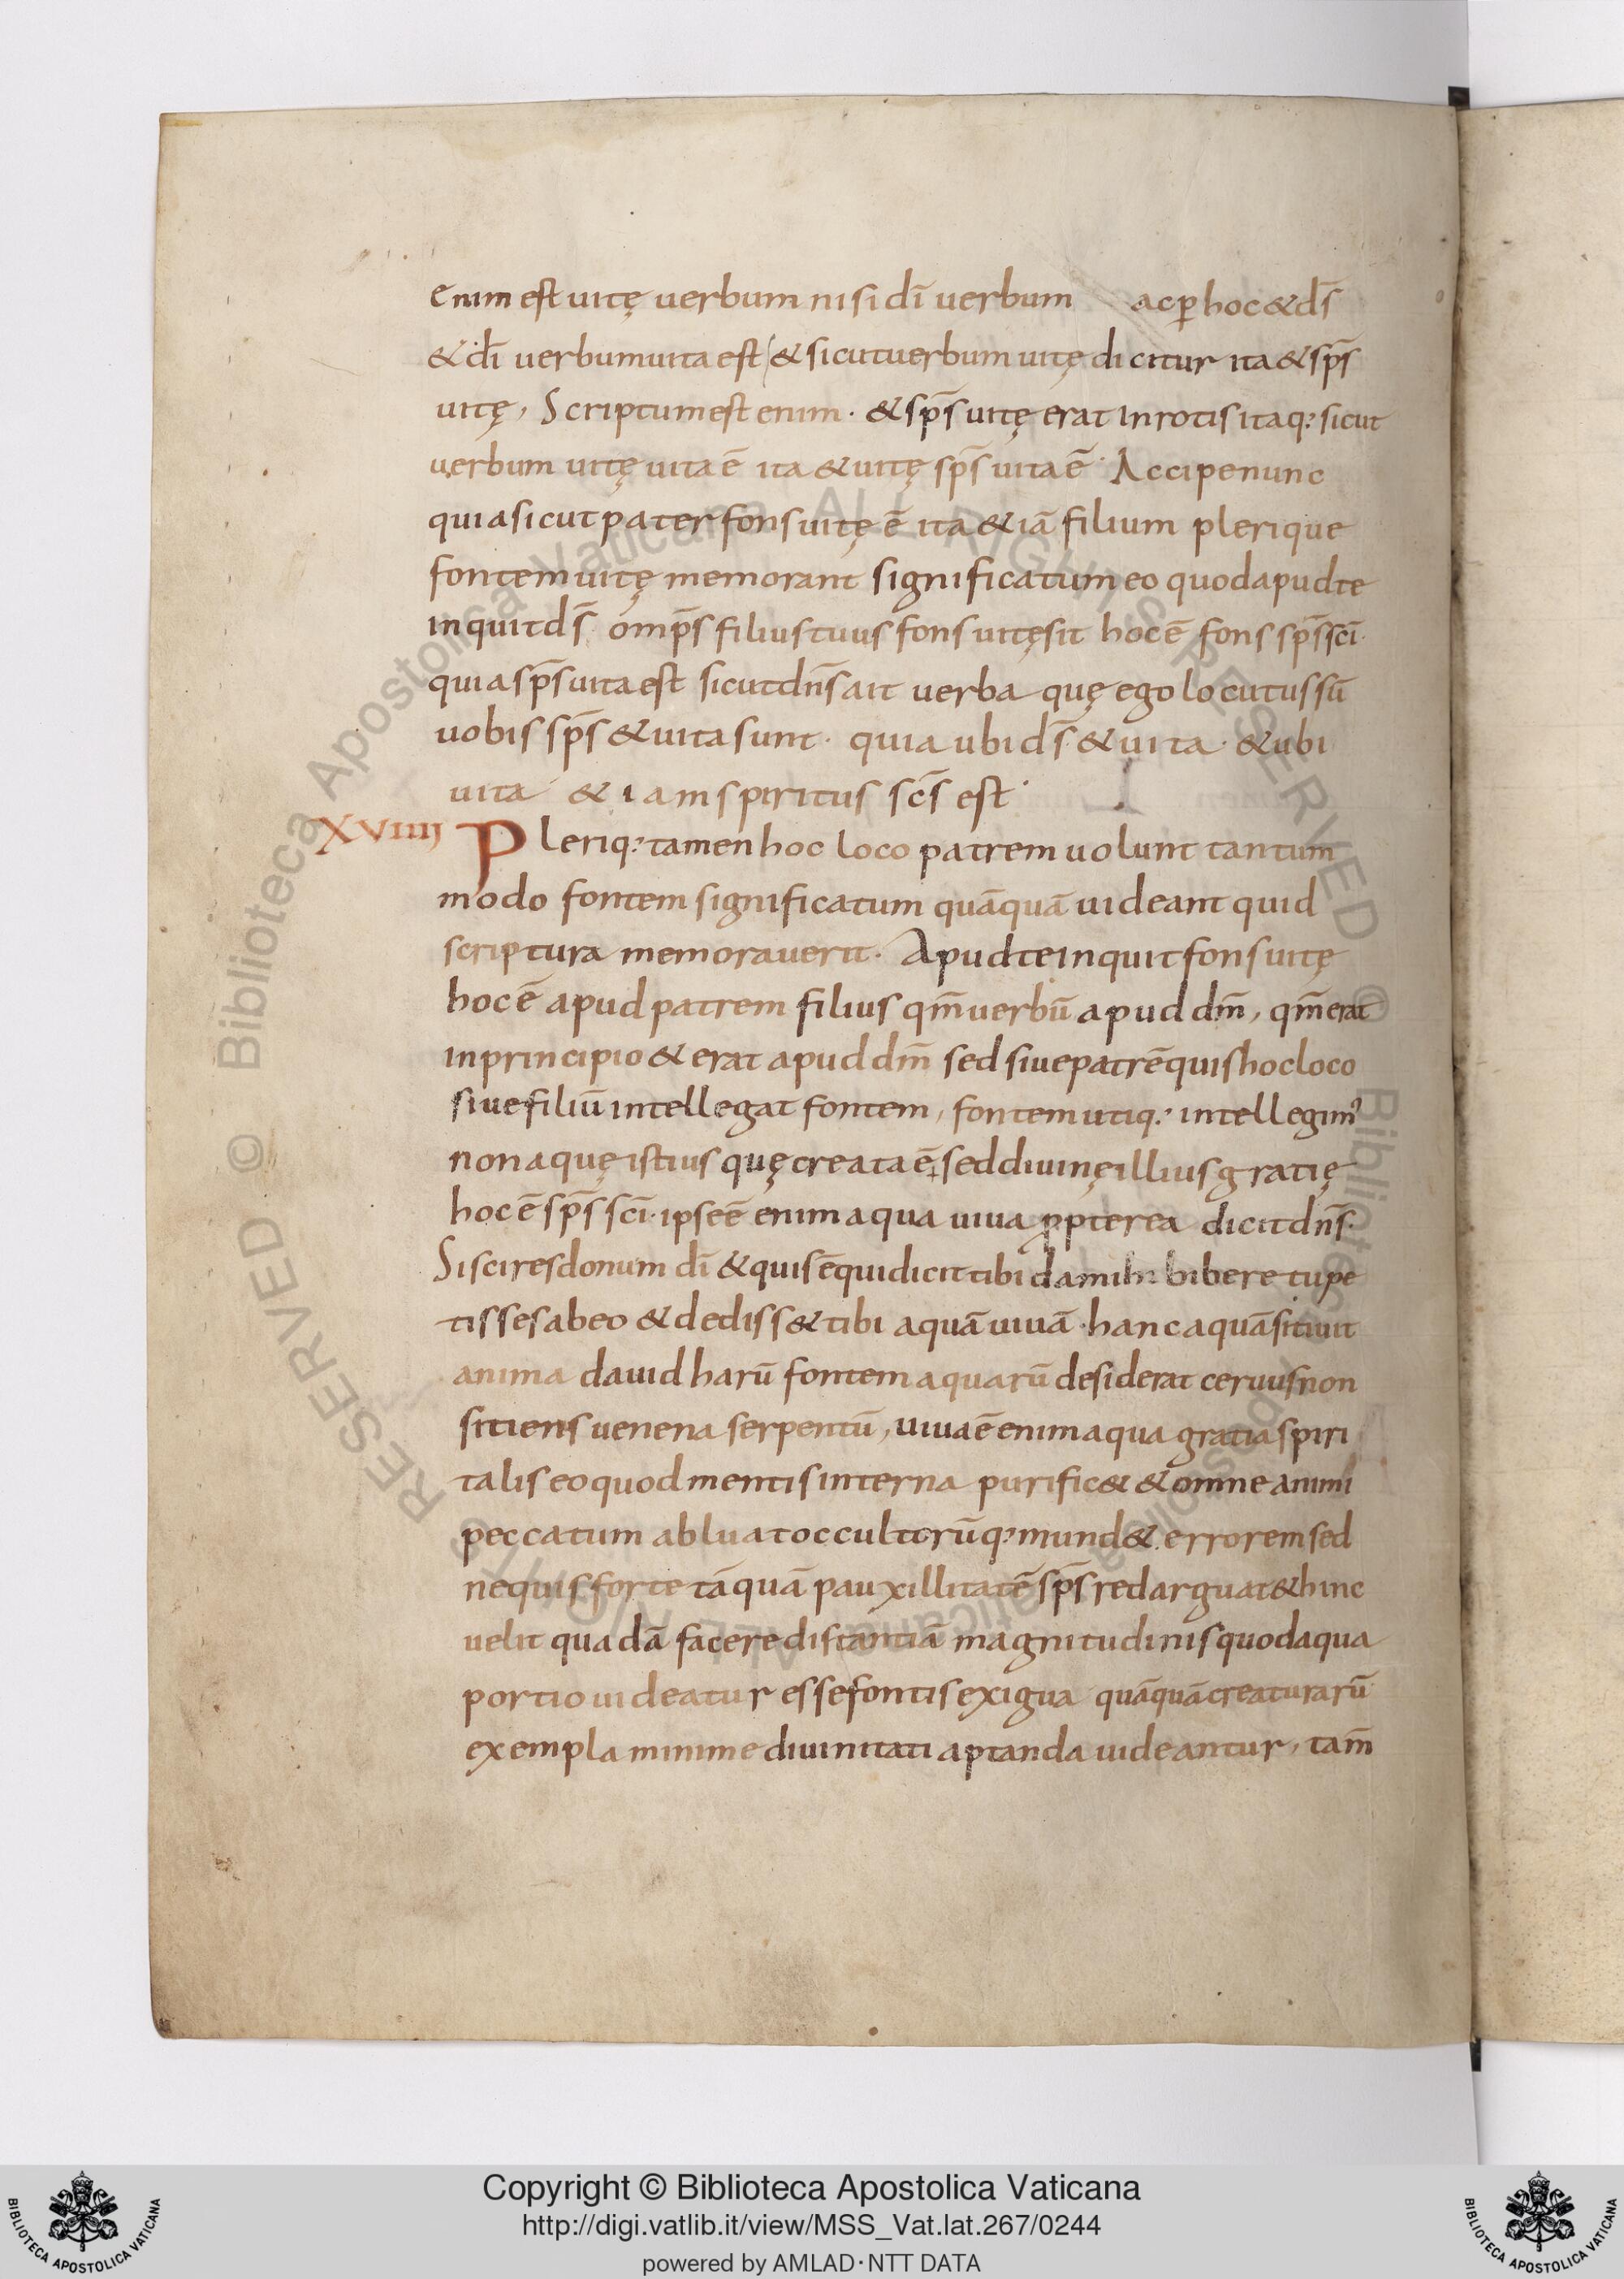 enim est uitę uerbum nisi dī uerbum ac ꝑ hoc & ds̄
& dī uerbum uita est & sicut uerbum uitę dicitur ita & sps̄
uitę, Scriptum est enim · & sps̄ uitę erat in rotis itaq: sicut
uerbum uitę uita ē ita & uitę sps̄ uita ē · Accipe nunc
quia sicut pater fons uitę ē ita & iā filium plerique
fontem uitę memorant significatum eo quod apud te
inquit ds̄ omps̄ filius tuus fons uitę sit hoc ē fons sps̄ scī ·
quia sps̄ uita est sicut dns̄ ait uerba quę ego locutus sū
uobis sps̄ & uita sunt · quia ubi ds̄ & uita · & ubi
uita & iam spiritus scs̄ est ·
XVIIII Pleriq: tamen hoc loco patrem uolunt tantum
modo fontem significatum quāquā uideant quid
scriptura memorauerit · Apud te inquit fons uitę
hoc ē apud patrem filius qm̄ uerbū apud dm̄, qm̄ erat
in principio & erat apud dm̄ sed siue patrē quis hoc loco
siue filiū intellegat fontem, fontem utiq: intellegim᾽
non aquę istius quę creata ē, sed diuinę illius gratię
hoc ē sps̄ scī · ipse ē enim aqua uiua ꝓpterea dicit dns̄ ·
Si scires donum dī & quis ē qui dicit tibi da mihi bibere tu pe
tisses ab eo & dediss& tibi aquā uiuā · hanc aquā sitiuit
anima dauid harū fontem aquarū desiderat ceruus non
sitiens uenena serpentū, uiua ē enim aqua gratia spiri
talis eo quod mentis interna purific& & omne animi
peccatum abluat occultorūq: mund& errorem sed
nequis forte tāquā pauxillitatē sps̄ redarguat & hinc
uelit quadā facere distantiā magnitudinis quod aqua
portio uideatur esse fontis exigua quāquā creaturarū
exempla minime diuinitati aptanda uideantur, tam̄
Copyright © Biblioteca Apostolica Vaticana
http://digi.vatlib.it/view/MSS_Vat.lat.267/0244
powered by AMLAD·NTT DATA
BIBLIOTECA APOSTOLICA VATICANA
BIBLIOTECA APOSTOLICA VATICANA